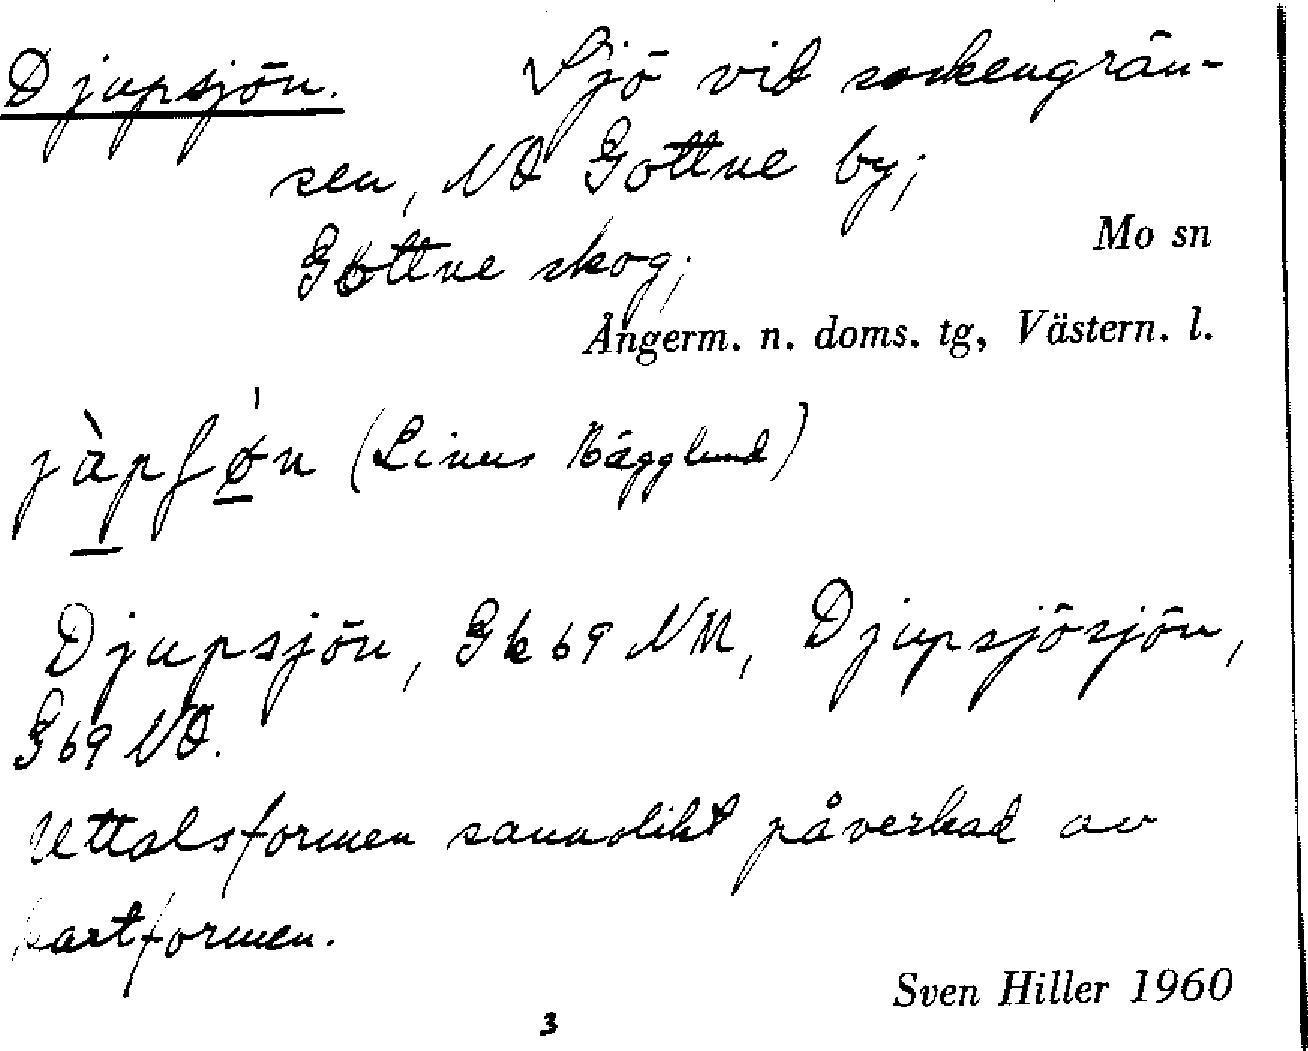 Djupsjön. Sjö vid sockengrän-
sen, NO Gottne by;
Gottne skog;
Mo sn
Ångerm. n. doms. tg, Västern. l.
(Linus Hägglund)
Djupsjön, Gk 69 NM, Djupsjösjön,
G 69 NO.
Uttalsformen sannolikt påverkad av
kartformen.
Sven Hiller 1960
3